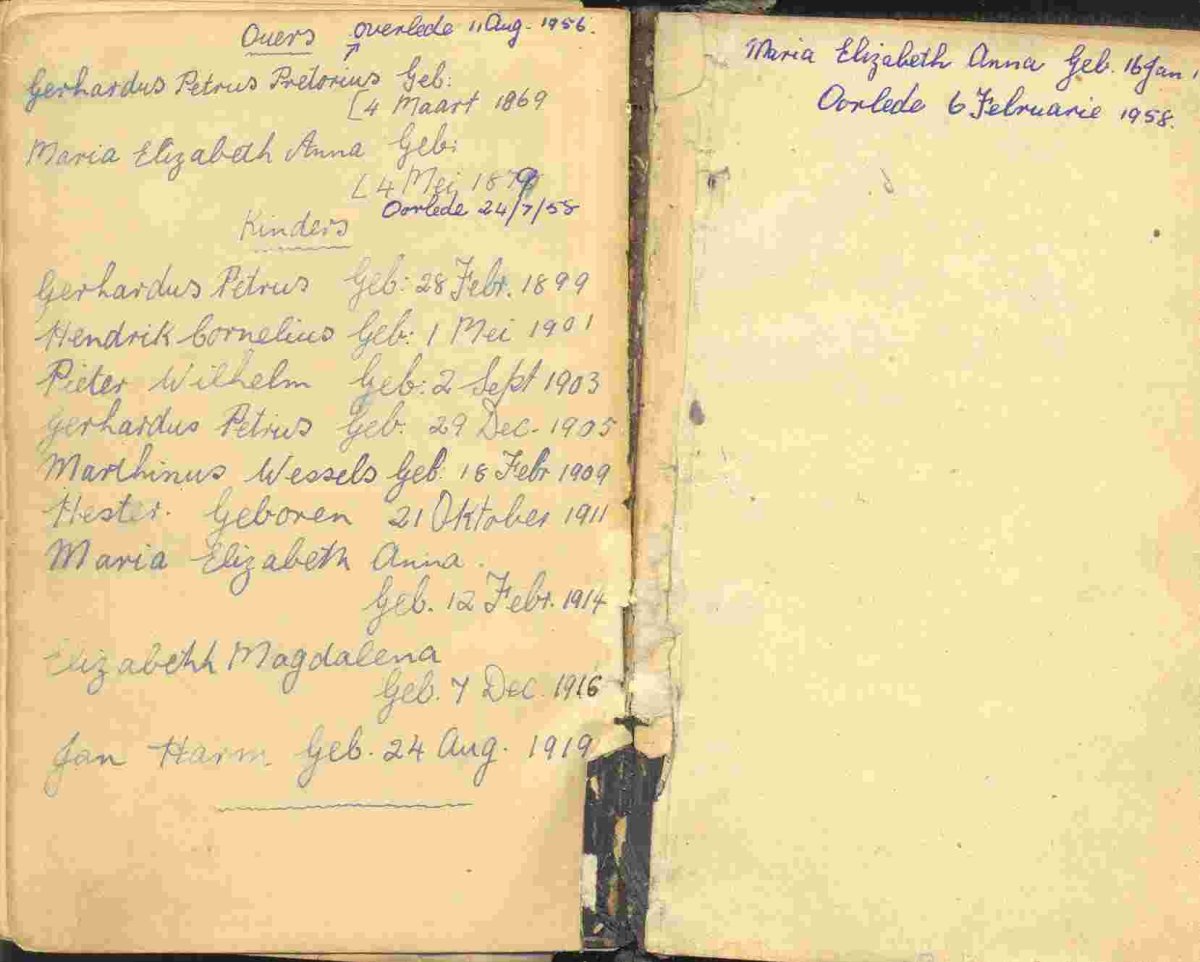 Ouers overlede 11 Aug. 1956.
Gerhardus Petrus Pretorius Geb:
[4 Maart 1869
Maria Elizabeth Anna Geb:
[4 Mei 1879
Oorlede 24/7/58
Kinders
Gerhardus Petrus Geb: 28 Febr. 1899
Hendrik Cornelius Geb: 1 Mei 1901
Pieter Wilhelm Geb: 2 Sept 1903
Gerhardus Petrus Geb. 29 Dec. 1905
Marthinus Wessels Geb. 18 Febr 1909
Hester. Geboren 21 Oktober 1911
Maria Elizabeth Anna.
Geb. 12 Febr. 1914
Elizabeth Magdalena
Geb. 7 Dec. 1916
Jan Harm Geb. 24 Aug. 1919
Maria Elizabeth Anna Geb. 16 Jan 1
Oorlede 6 Februarie 1958.